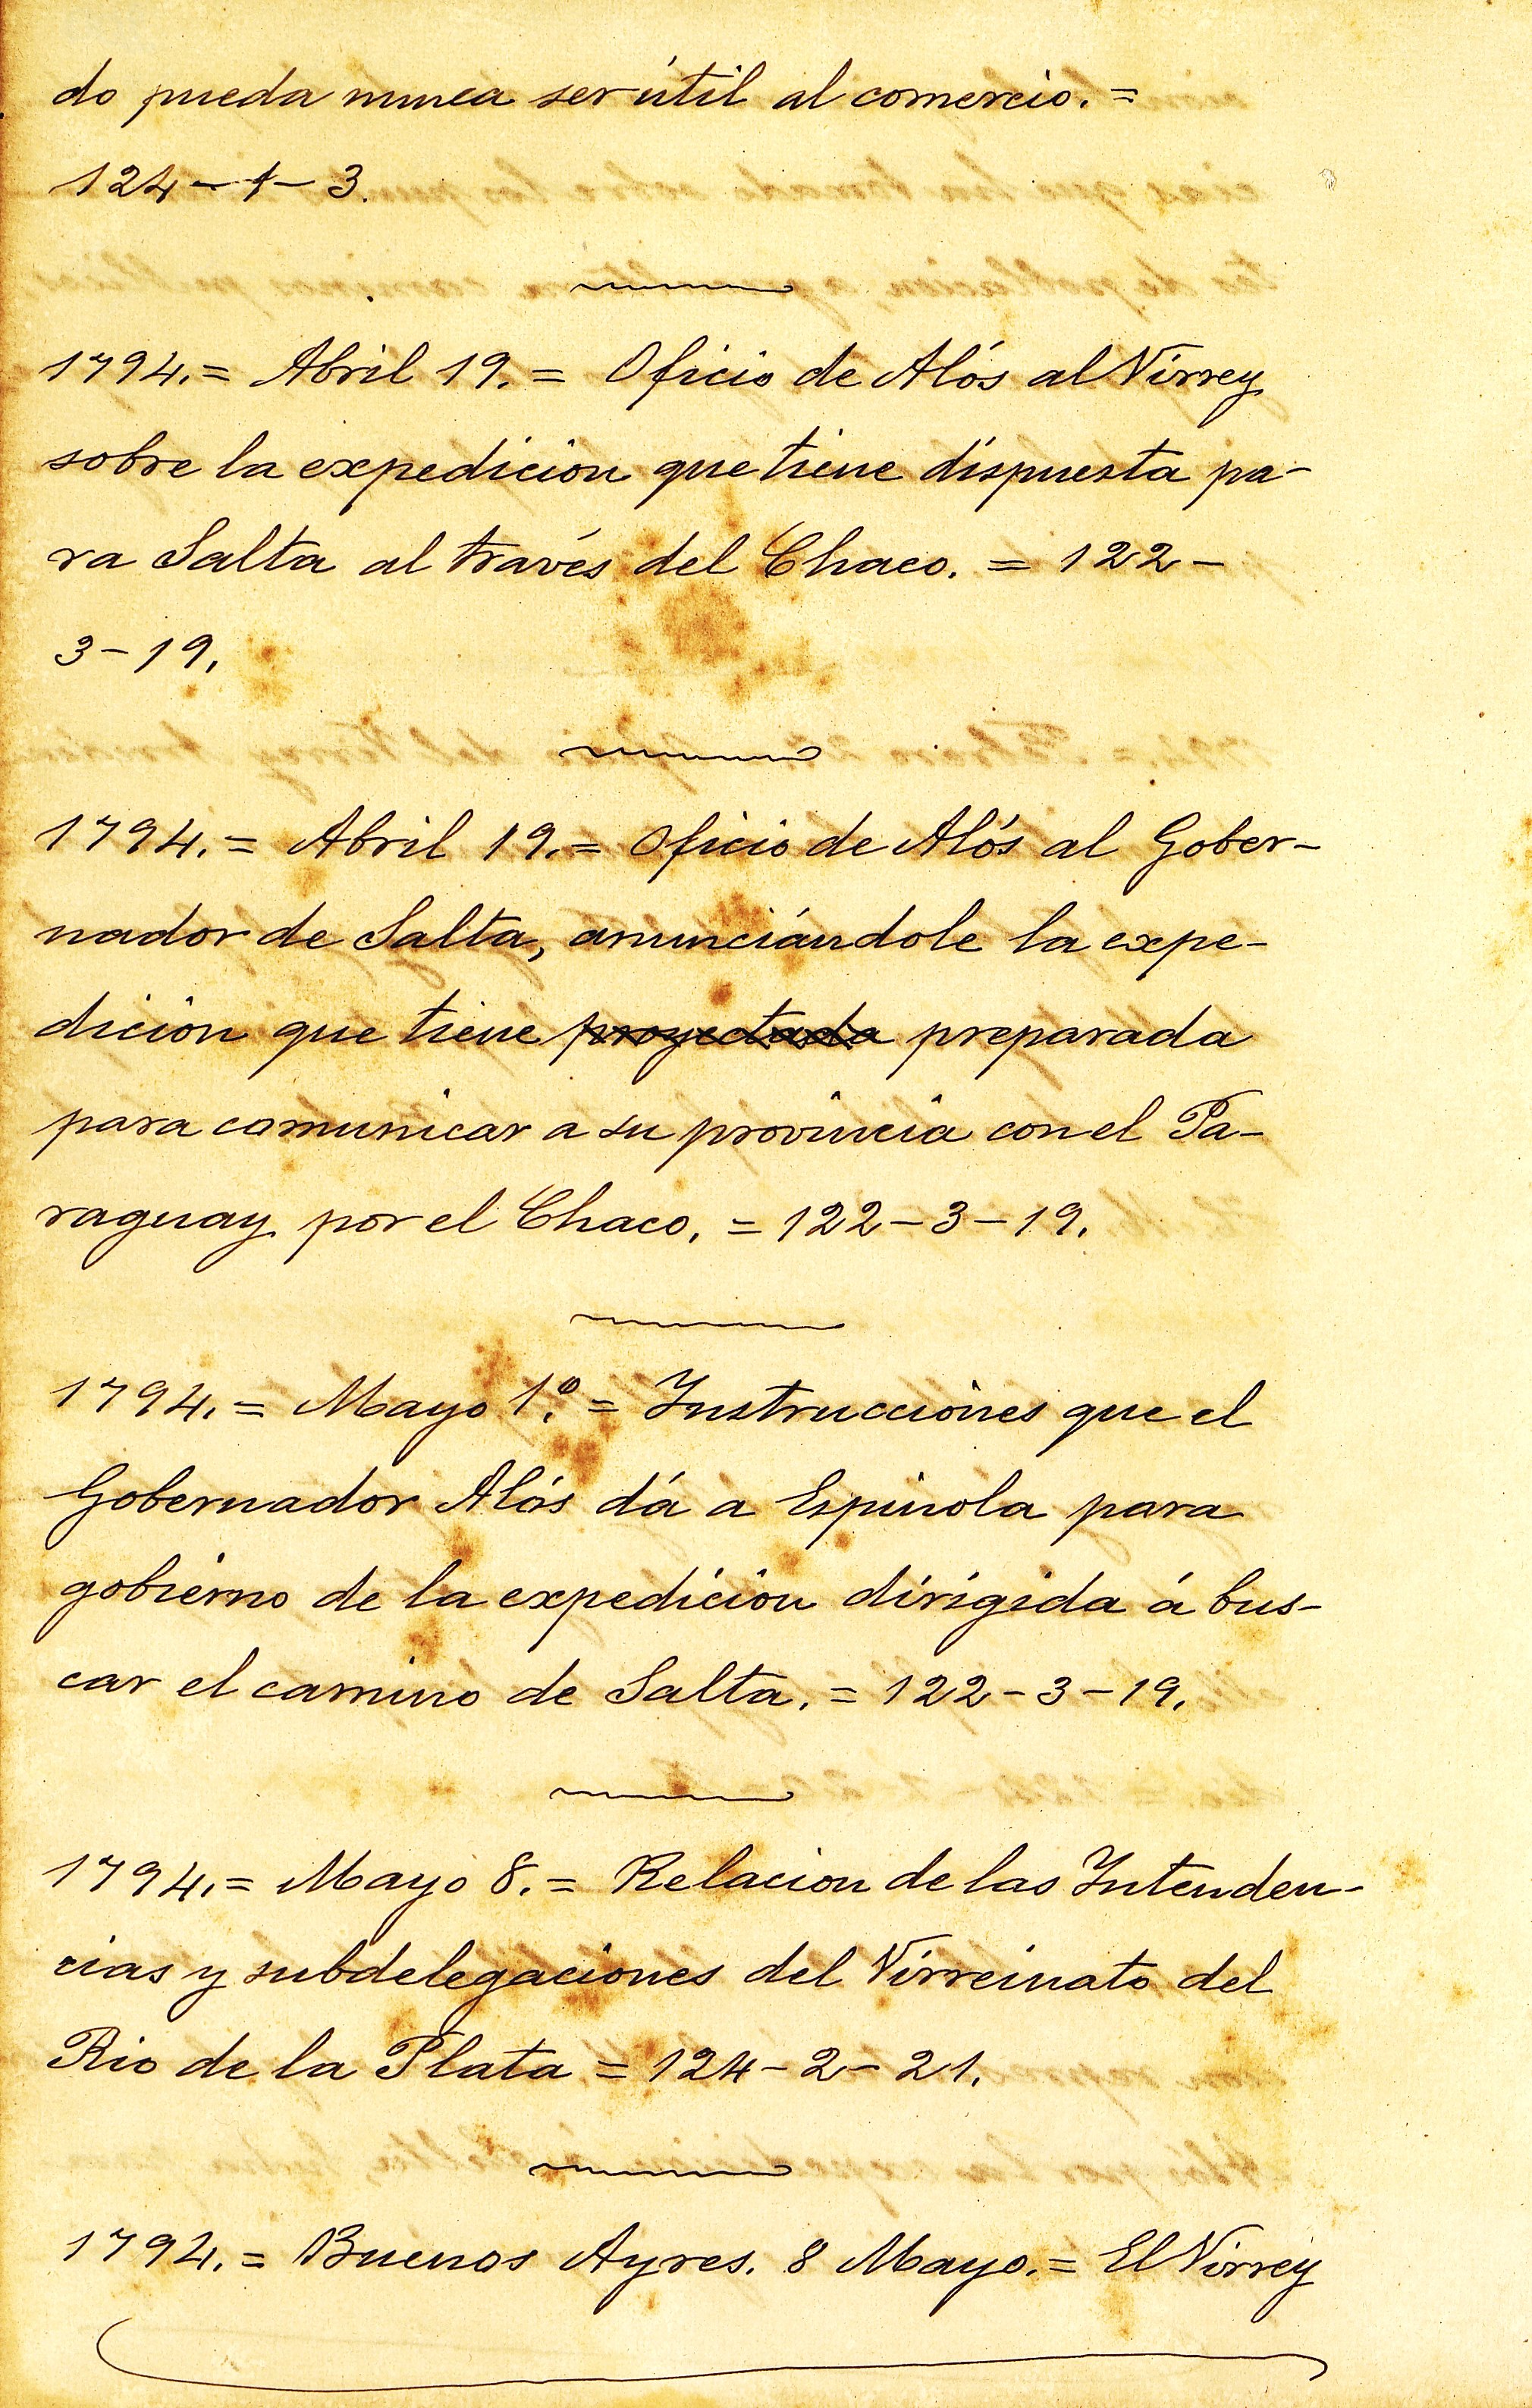 do pueda nunca ser útil al comercio. =
124-1-3.
1794. = Abril 19. = Oficio de Alós al Virrey
sobre la expedición que tiene dispuesta pa-
ra Salta al través del Chaco. = 122-
3-19.
1794. = Abril 19. = Oficio de Alós al Gober-
nador de Salta, anunciándole la expe-
dición que tiene proyectada preparada
para comunicar a su provincia con el Pa-
raguay por el Chaco. = 122-3-19.
1794. = Mayo 1.º = Instrucciones que el
Gobernador Alós dá a Espinola para
gobierno de la expedición dirigida á bus-
car el camino de Salta. = 122-3-19.
1794. = Mayo 8. = Relacion de las Intenden-
cias y subdelegaciones del Virreinato del
Rio de la Plata = 124-2-21.
1794. = Buenos Ayres. 8 Mayo. = El Virrey